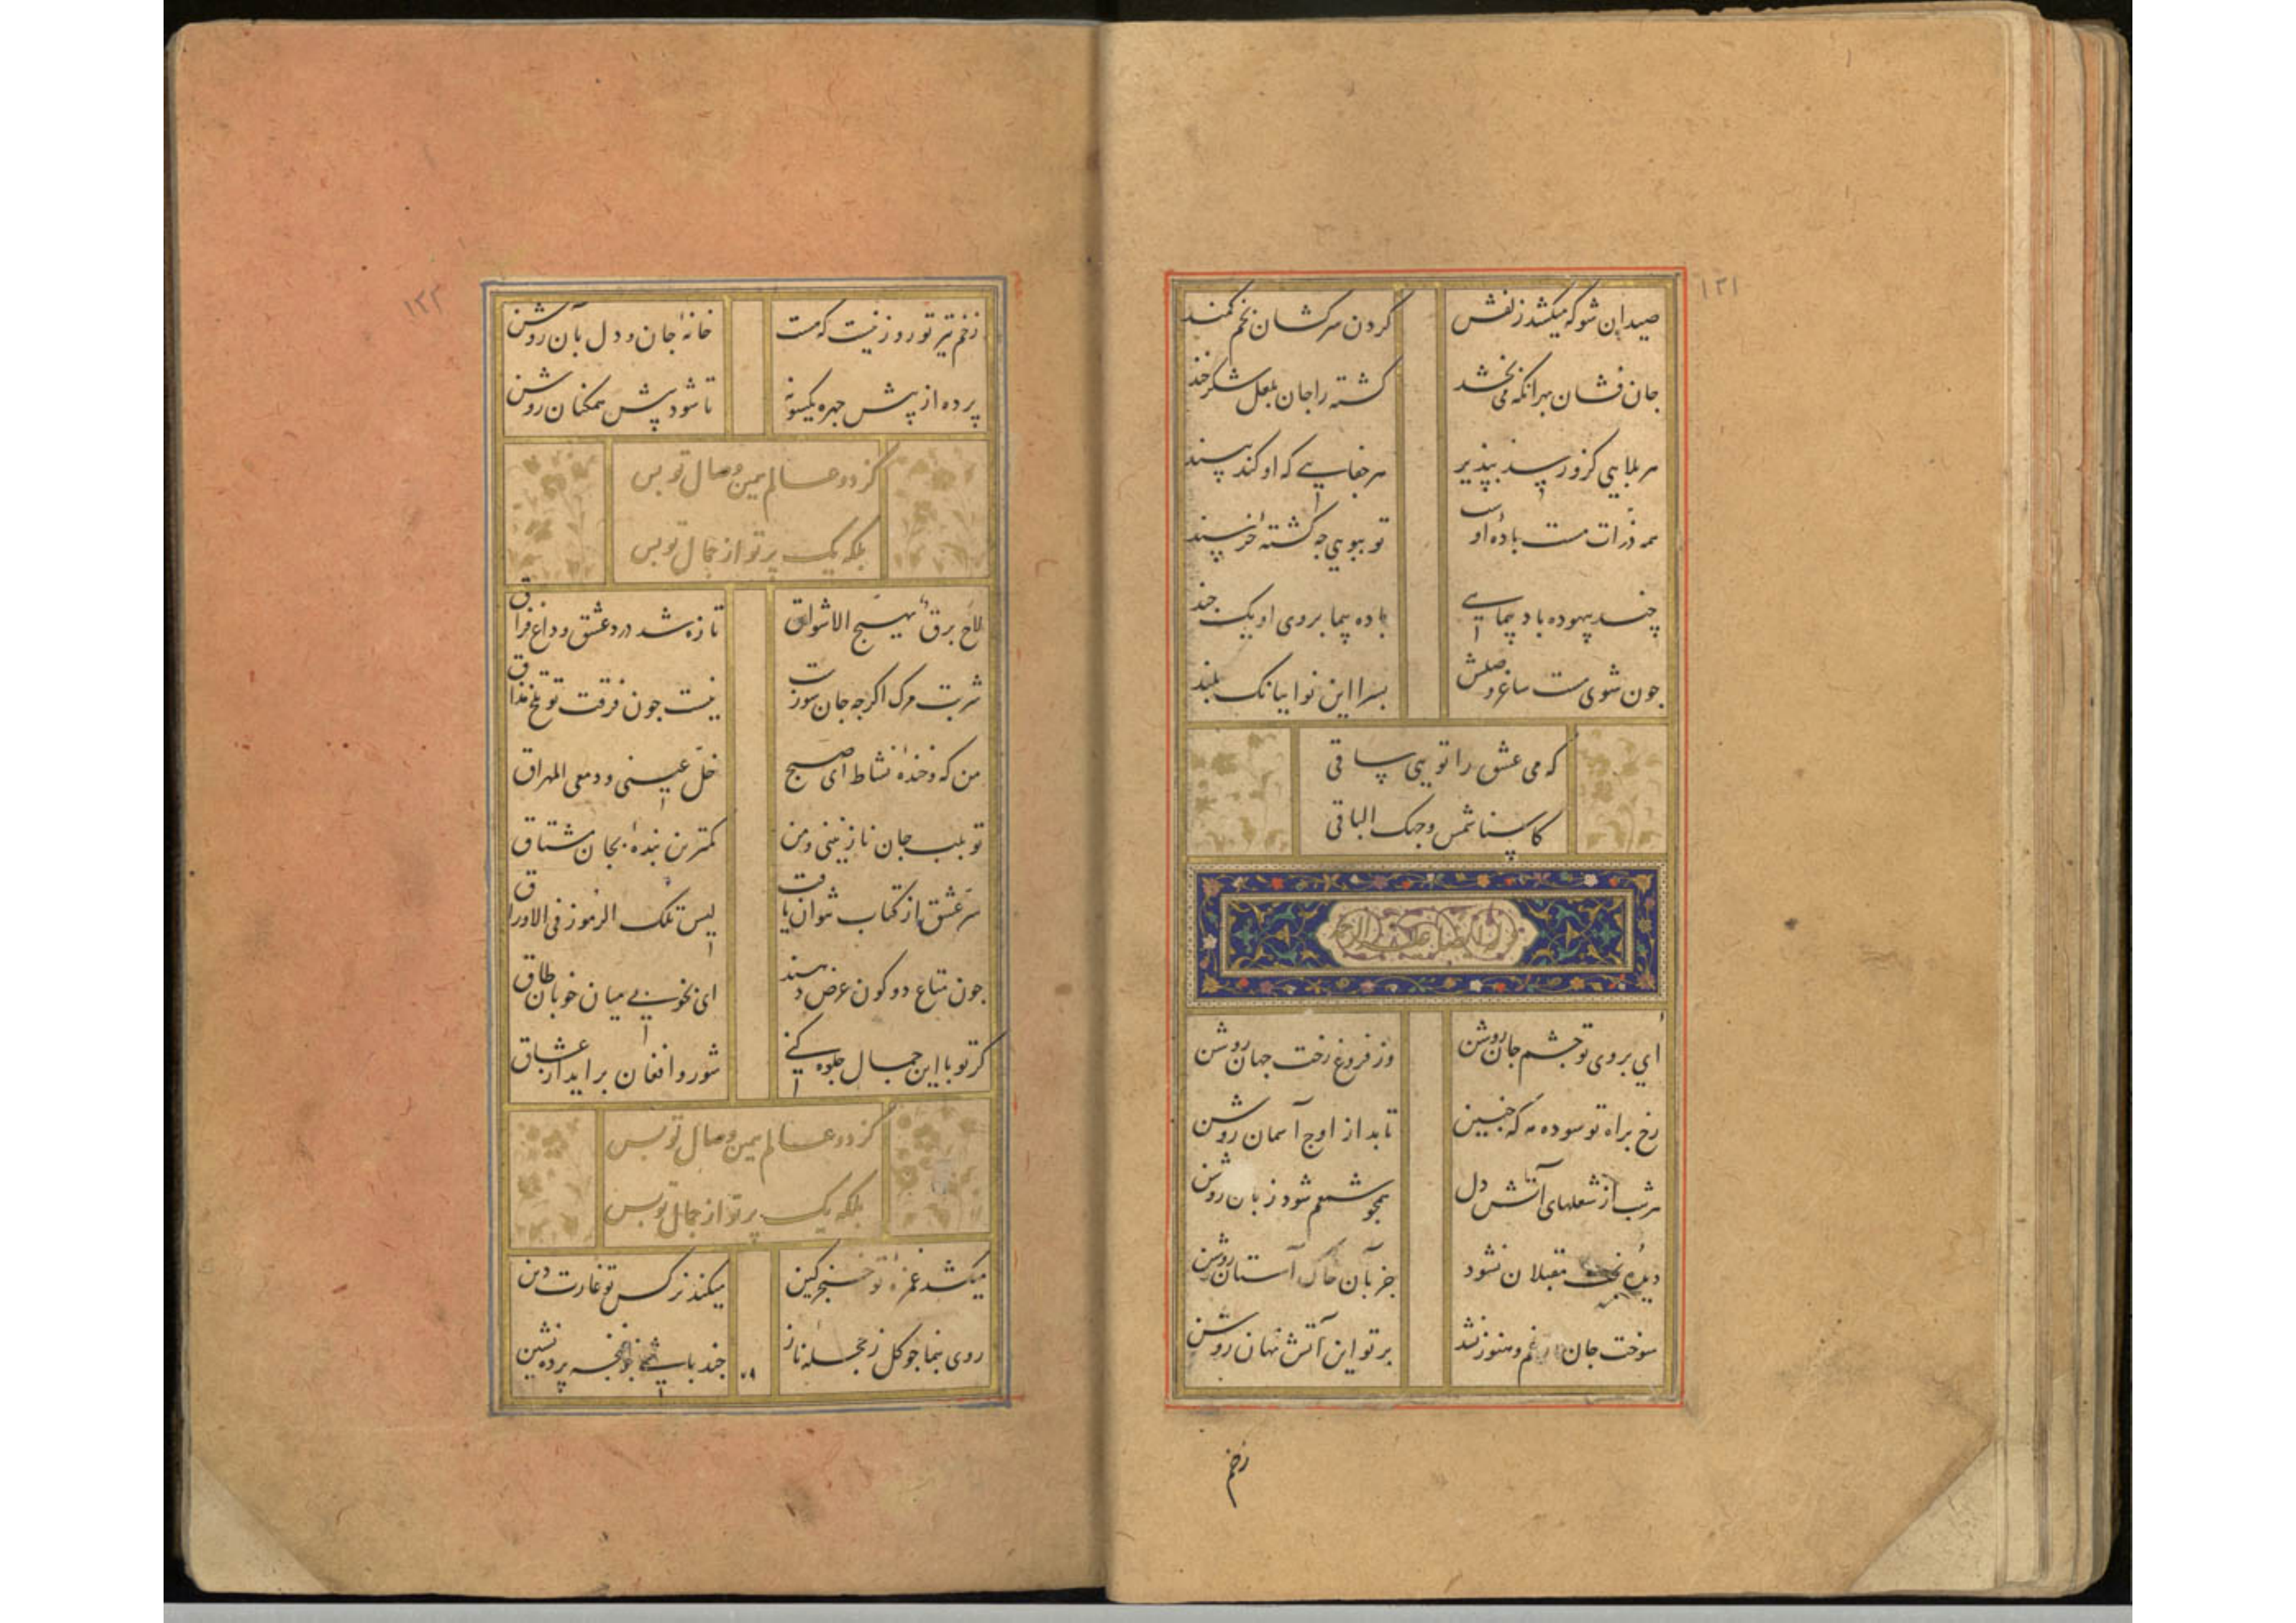 ۱۲۱
صید ان شو که میکشد زلفش
گردن سرکشان بخم کمند
جان فشان بهر انکه می بخشد
کشته را جان بلعل شکر خند
هر بلایی کزو رسد بپذیر
هر جفایی که او کند بپسند
همه ذرات مست بادهٔ اوست
تو ببویی چه کشتهٔ خرسند
چند بیهوده باد پیمایی
باده پیما بروی او یک چند
چون شوی مست ساغر وصلش
بسرا این نوا ببانک بلند
که می عشق را تویی ساقی
کاسنا شمس وجهک الباقی
ای بروی تو چشم جان روشن
وز فروغ رخت جهان روشن
رخ براه تو سوده مه که جبین
تابد از اوج آسمان روشن
هر شب از شعلهای آتش دل
همچو شمعم شود زبان روشن
دیدهٔ بخت مقبلان نشود
جز بآن خاک آستان روشن
سوخت جان غم و هنوز نشد
برتو این آتش نهان روشن
زخم
۱۲۲
زخم تیر تو روزنیست که هست
خانهٔ جان و دل بآن روشن
پرده از پیش چهره یکسو نه
تا شود پیش همکنان روشن
کز دو عالم همین وصال تو بس
بلکه یک پرتو از جمال تو بس
لاح برق یهیج الاشواق
تازه شد درد عشق و داغ فراق
شربت مرک اکرچه جان سوزست
نیست چون فرقت تو تلخ مذاق
من که و خندهٔ نشاط ای صبح
خل عینی و دمعی المهراق
تو بلب جان نازنینی و من
کمترین بندهٔ بجان مشتاق
سر عشق از کتاب نتوان یافت
لیس تلک الرموز فی الاوراق
چون متاع دو کون عرض دهند
ای بخوبی میان خوبان طاق
کر تو با این جمال جلوه کنی
شور و افغان براید از عشاق
کز دو عالم همین وصال تو بس
بلکه یک پرتو از جمال تو بس
میکشد غمزهٔ تو خنجر کین
میکند نرکس تو غارت دین
روی بنما چو کل ز حجلهٔ ناز
چند باشی چو غنچه پرده نشین